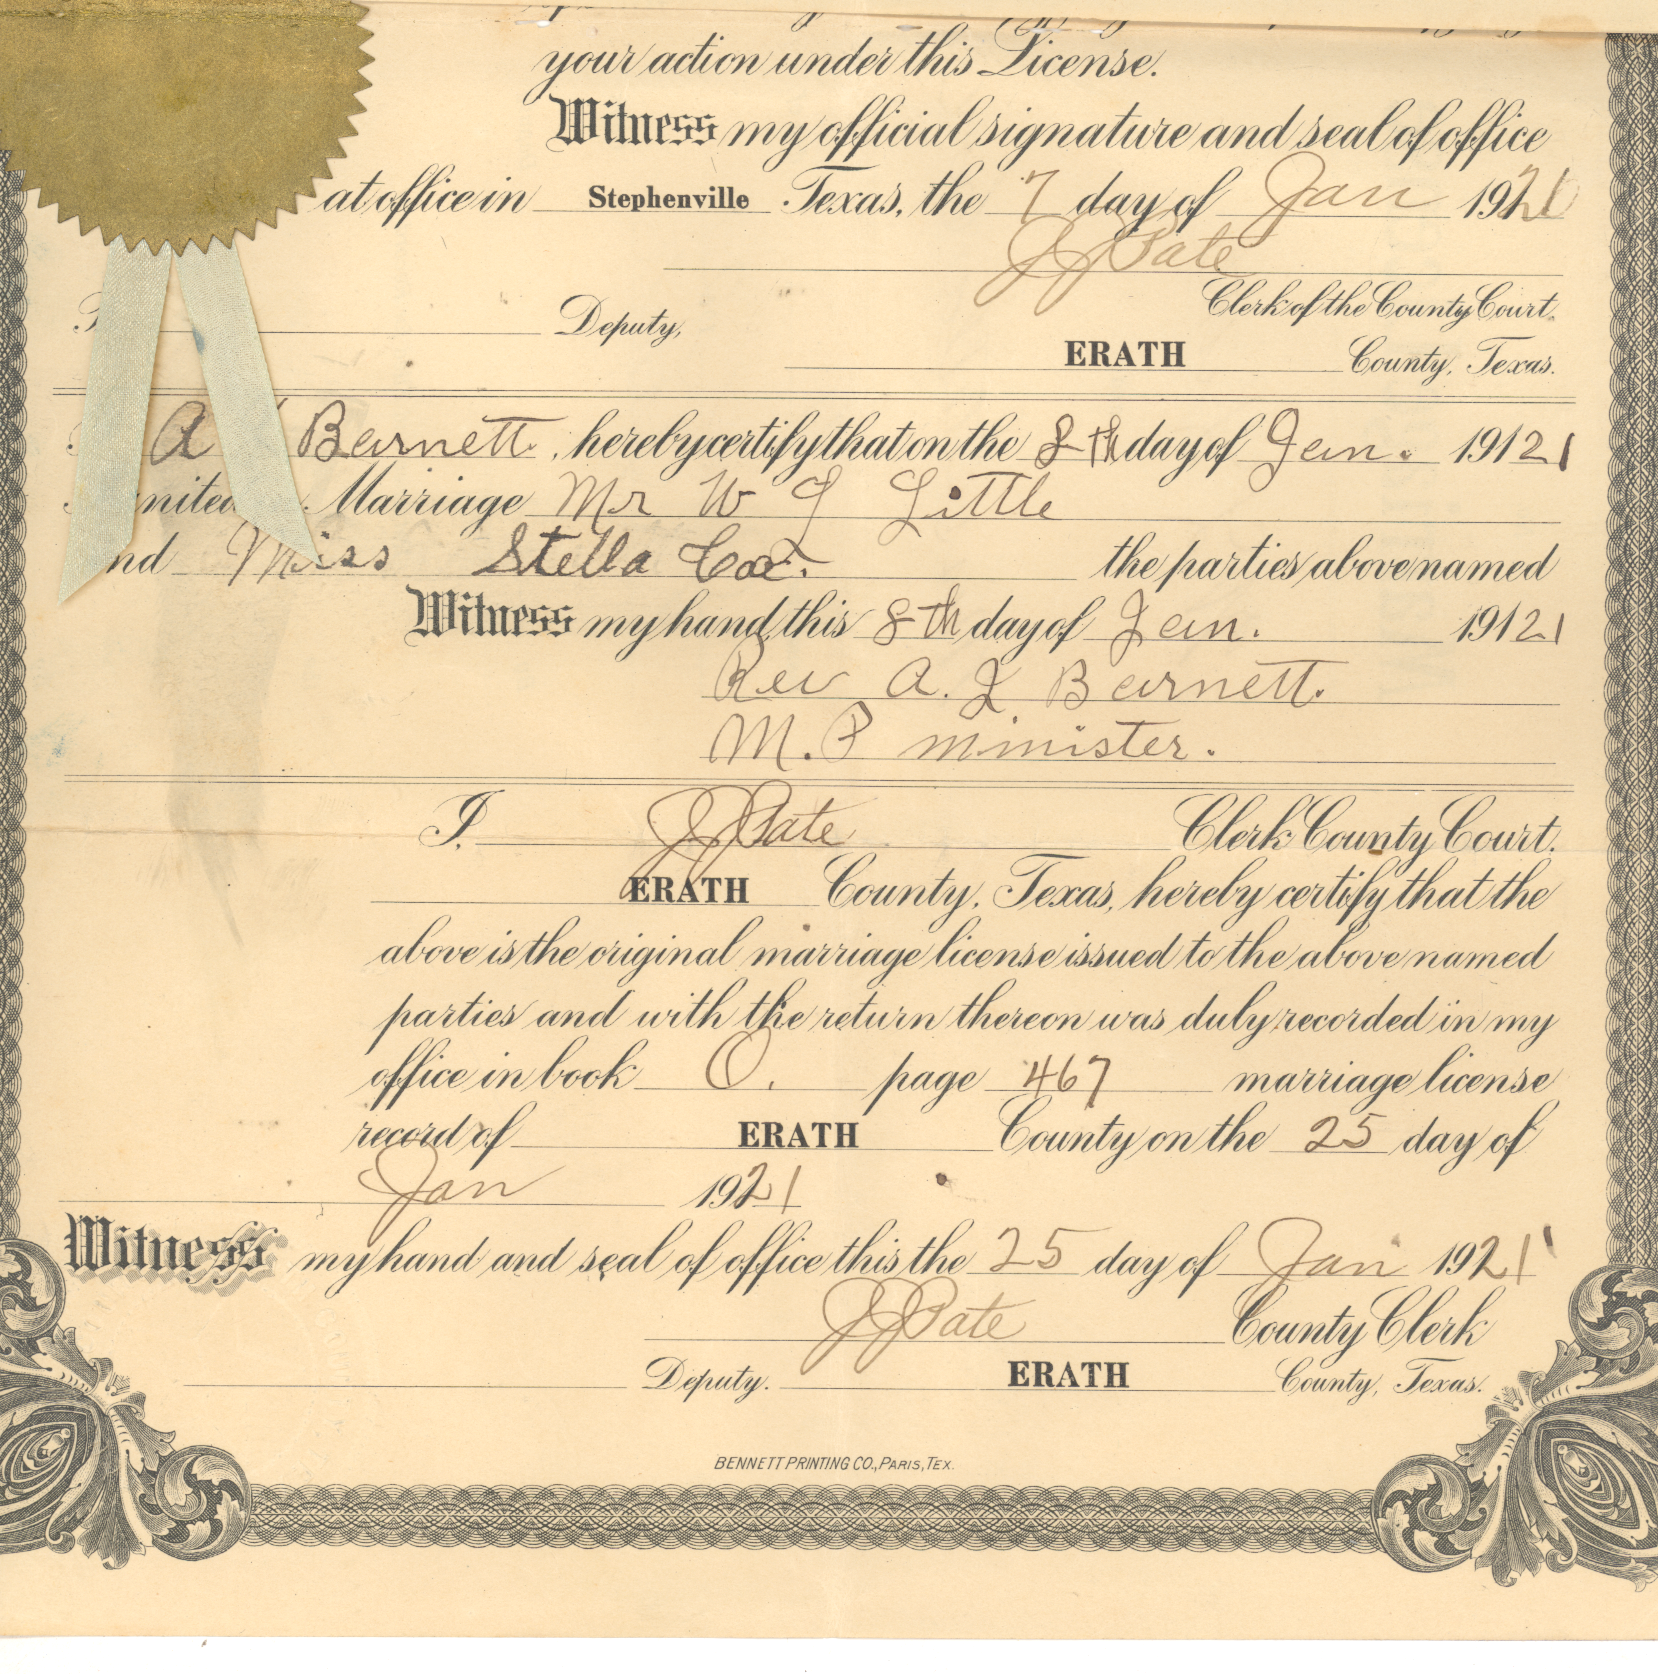 your action under this License.
Witness my official signature and seal of office
at office in Stephenville Texas, the 7 day of Jan 1921
J J Pate
Clerk of the County Court.
Deputy,
ERATH County, Texas.
A Barnett, hereby certify that on the 8th day of Jan. 19121
Marriage Mr W J Little
Miss Stella Cox. the parties above named
Witness my hand, this 8th day of Jan. 19121
Rev A. J Barnett.
M. P minister.
I, J J Pate Clerk County Court.
ERATH County, Texas, hereby certify that the
above is the original marriage license issued to the above named
parties and with the return thereon was duly recorded in my
office in book O. page 467 marriage license
record of ERATH County on the 25 day of
Jan 1921
Witness my hand and seal of office this the 25 day of Jan 1921
J J Pate County Clerk
Deputy. ERATH County, Texas.
BENNETT PRINTING CO., PARIS, TEX.